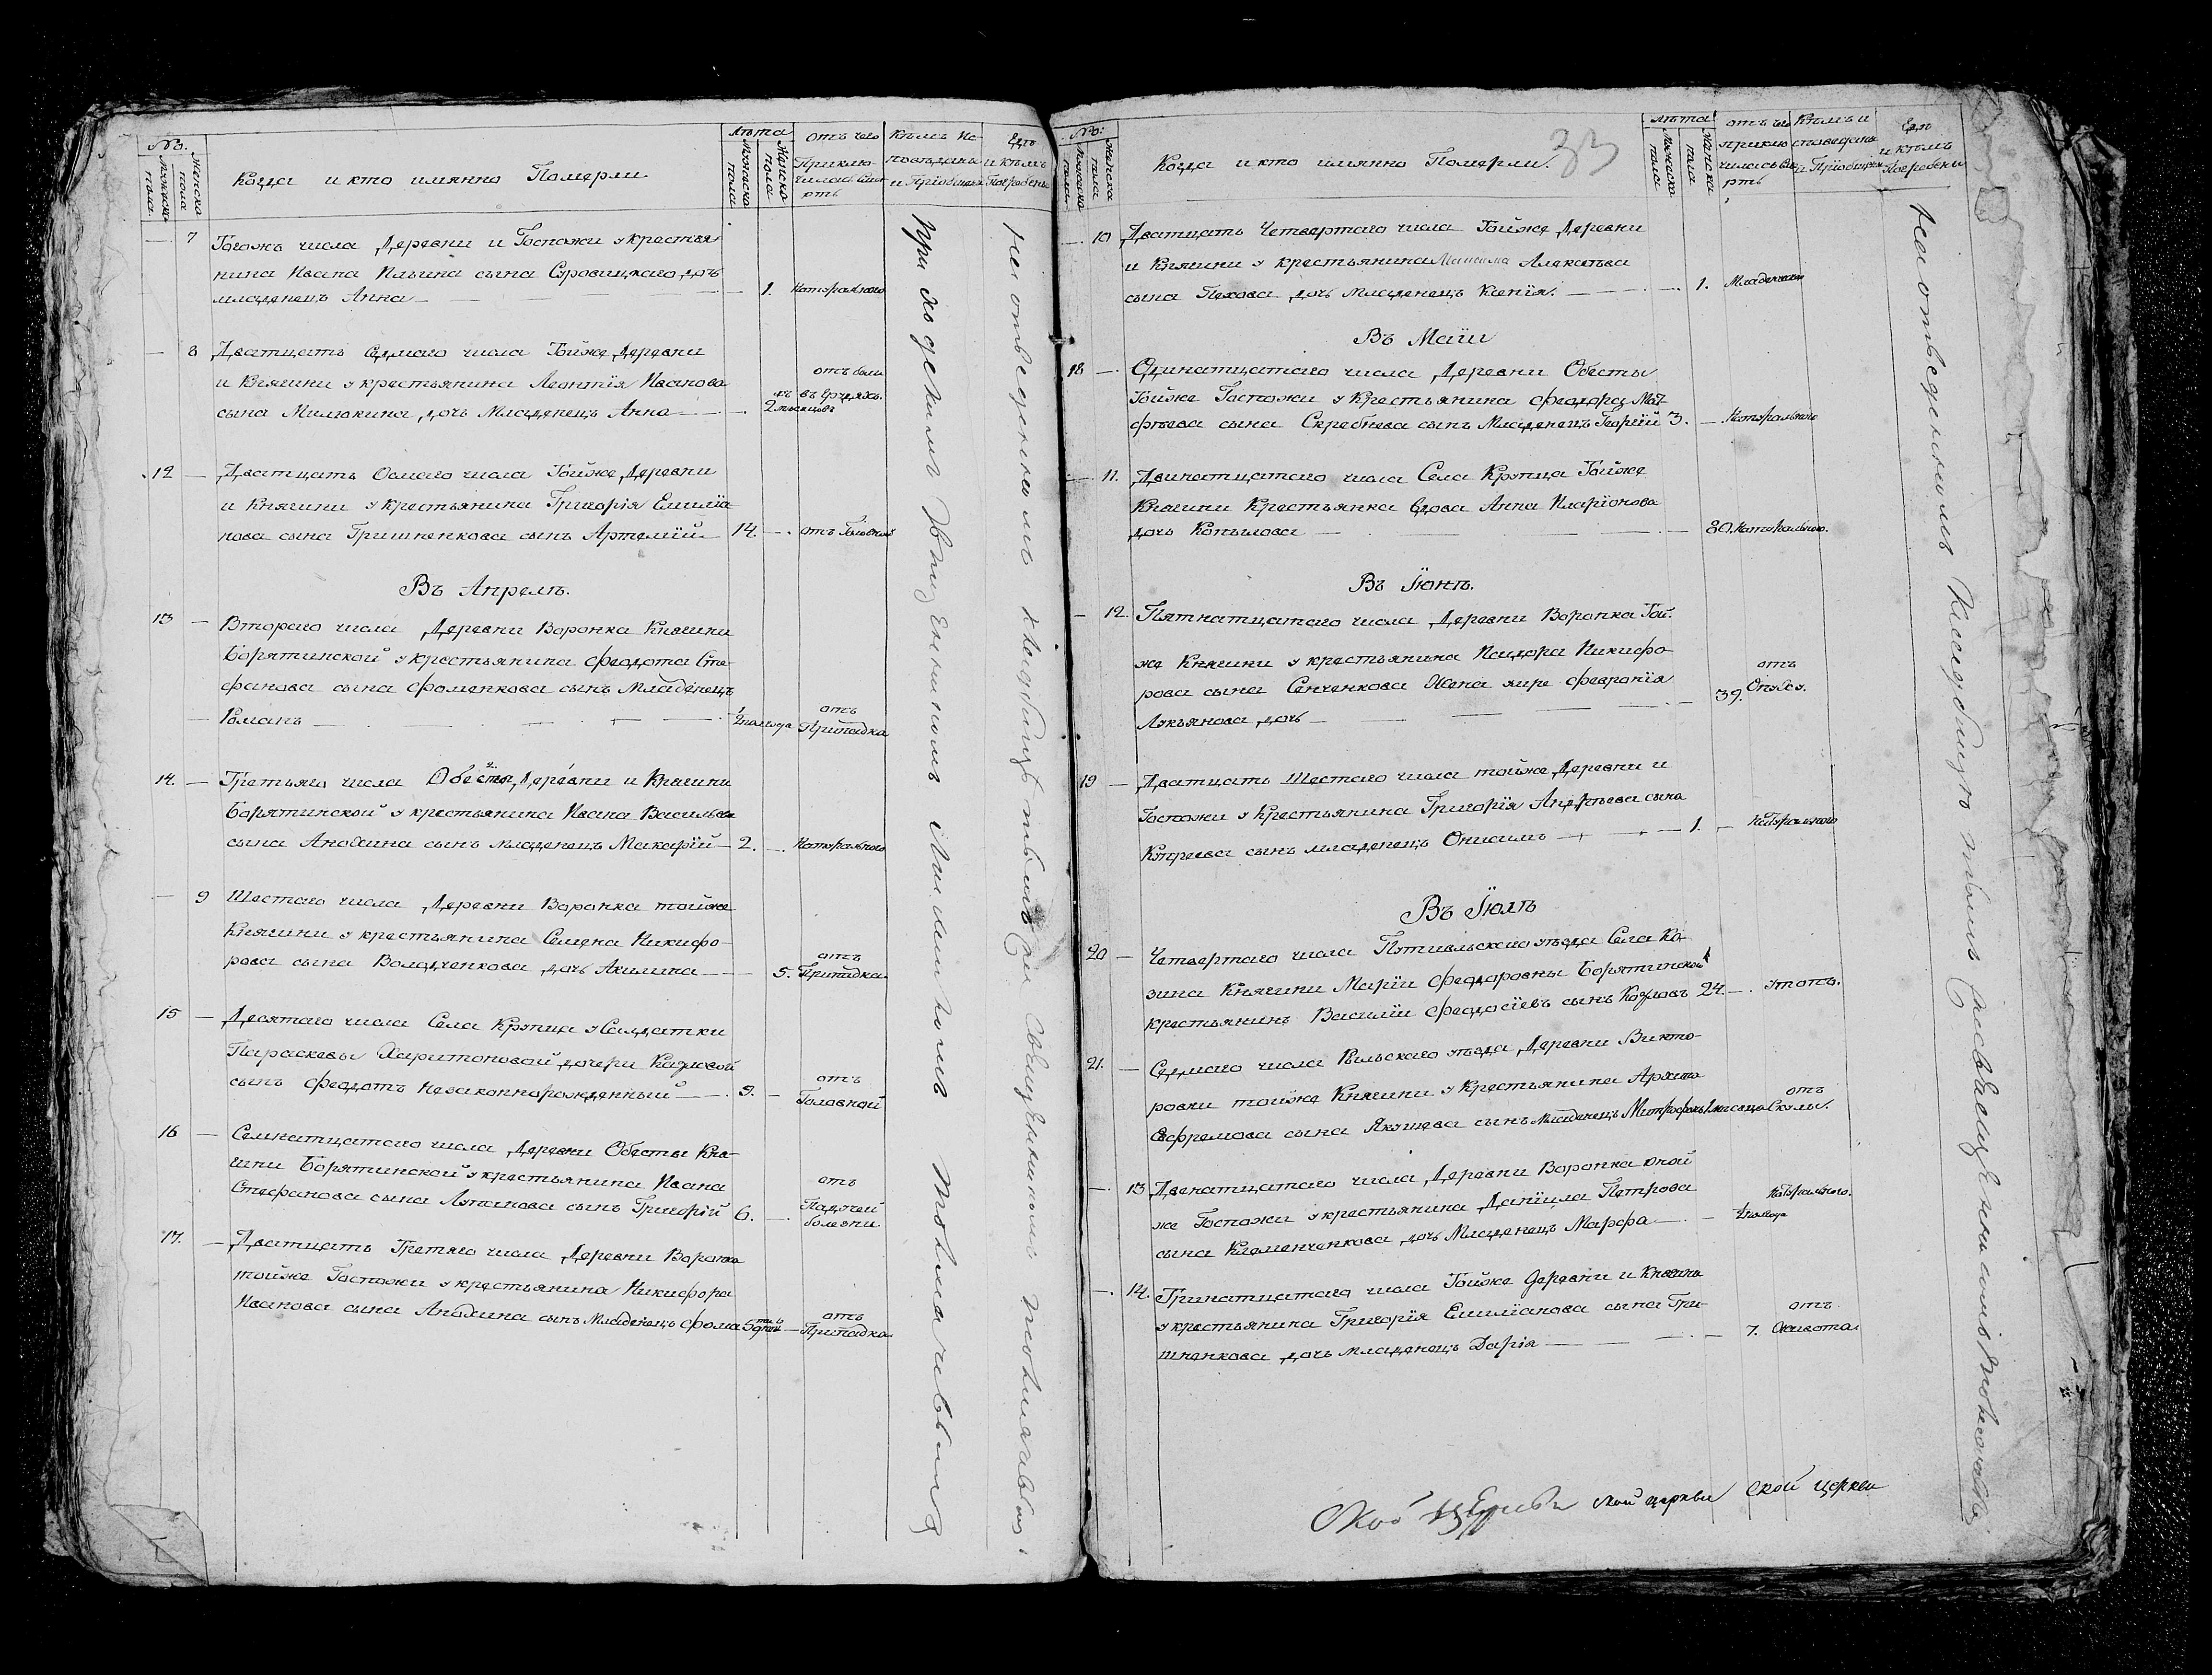 №.
Мужеска пола.
Женска пола
Когда и кто имянно Померли
Лѣта
Мужеска пола
Женска пола.
Отъ чего Приклю-
чилась Сме-
рть
Кѣмъ Ис-
повѣданы
и Пріобщены
Гдѣ
и кѣмъ
Погребены
— 7 Тогожъ числа Деревни и Госпожи у крестья-
нина Ивана Ильина сына Суровицкаго дочь
младенецъ Анна — 1. Натуральною
— 8 Дватцать Седмаго числа Тойже Деревни
и Княгини у крестьянина Леонтїя Иванова
сына Милюкина, дочь Младенецъ Анна — 2 месяцовъ
12 — Дватцать Осмаго числа Тойже Деревни
и Княгини у крестьянина Григорїя Емилїа
нова сына Гришненкова сынъ Артемїй — 14. — отъ Головной
Въ Апрелѣ.
13 — Втораго числа Деревни Воронка Княгини
Борятинской у крестьянина Феодота Сте-
фанова сына Фоменкова сынъ Младенецъ
— Романъ — ½ полгода отъ Припадка
14. — Третьяго числа Обесты, Деревни и Княгини
Борятинской у крестьянина Ивана Васильева
сына Анохина сынъ младенецъ Макарїй — 2. — Натуральною
— 9 Шестаго числа Деревни Воронка тойже
Княгини у крестьянина Семена Никифо-
рова сына Володченкова дочь Акилина — 5. отъ Припадка
15 — Десятаго числа Села Крупца у Салдатки
Параскевы Харитоновой дочери Козловой
сынъ Феодотъ Незаконнорожденный — 9. — отъ Головной
16 — Семнатцатаго числа Деревни Обесты Кня-
гини Борятинской у крестьянина Ивана
Стефанова сына сынъ Григорїй 6. — отъ Падучей болезни
17. — Дватцать Третяго числа Деревни Воронка
тойже Госпожи у крестьянина Никифора
Иванова сына Анохина сынъ Младенецъ Фома 5 — отъ Припадка
33
№:
Мужеска пола
Женска пола
Когда и кто имянно Померли.
Лѣта
Мужеска пола
Женска пола
отъ чего
приклю
чилась Сме
рть
Кѣмъ и
споведаны
и Пріобщены
Гдѣ
и кѣмъ
Погребены
— 10 Дватцать Четвертаго числа Тойже Деревни
и Княгини у крестьянина Максима Алексѣева
сына Пехова дочь Младенецъ Ксенїя. — 1. Младенская
Въ Маїи
18 — Одинатцатаго числа Деревни Обесты
Тойже Госпожи у Крестьянина Феодора Мат-
фѣева сына Скребнева сынъ Младенецъ Георгїй 3. — Натуральною
— 11. Двинатцатаго числа Села Крупца Тойже
Княгини Крестьянка вдова Анна Иларїонова
дочь Копылова — 80. Натуральною.
Въ Їюнѣ.
— 12. Пятнатцатаго числа Деревни Воронка Той-
же Княгини у крестьянина Исидора Никифо-
рова сына Сенченкова Жена Февронїя
Лукьянова дочь — 39. отъ Опуху.
19 — Дватцать Шестаго числа тойже Деревни и
Госпожи у крестьянина Григорїя Андрѣева сына
Купреева сынъ младенецъ Онисимъ — 1. — Натуральною
Въ Їюлѣ
20 — Четвертаго числа Путивльскаго уѣзда Села Ко-
зина Княгини Марїи Феодоровны Борятинской
крестьянинъ Василїй Феодосїевъ сынъ Козловъ 24. — утопъ.
21. — Седмаго числа Рыльскаго уѣзда Деревни Викто-
ровки тойже Княгини у Крестьянина
Евфремова сына Якушева сынъ Младенецъ Митрофанъ 1 месяца отъ Скулы.
— 13 Двенатцатаго числа Деревни Воронка оной
же Госпожи у крестьянина Данїила Петрова
сына Клеменченкова дочь Младенецъ Марфа — ½ полгода Натуральною.
— 14. Тринатцатаго числа Тойже деревни и Княгини
у крестьянина Григорїя Емилїанова сына Гри-
шненкова дочь младенецъ Дарїя — 7. отъ Живота
ской церкви ской церкви